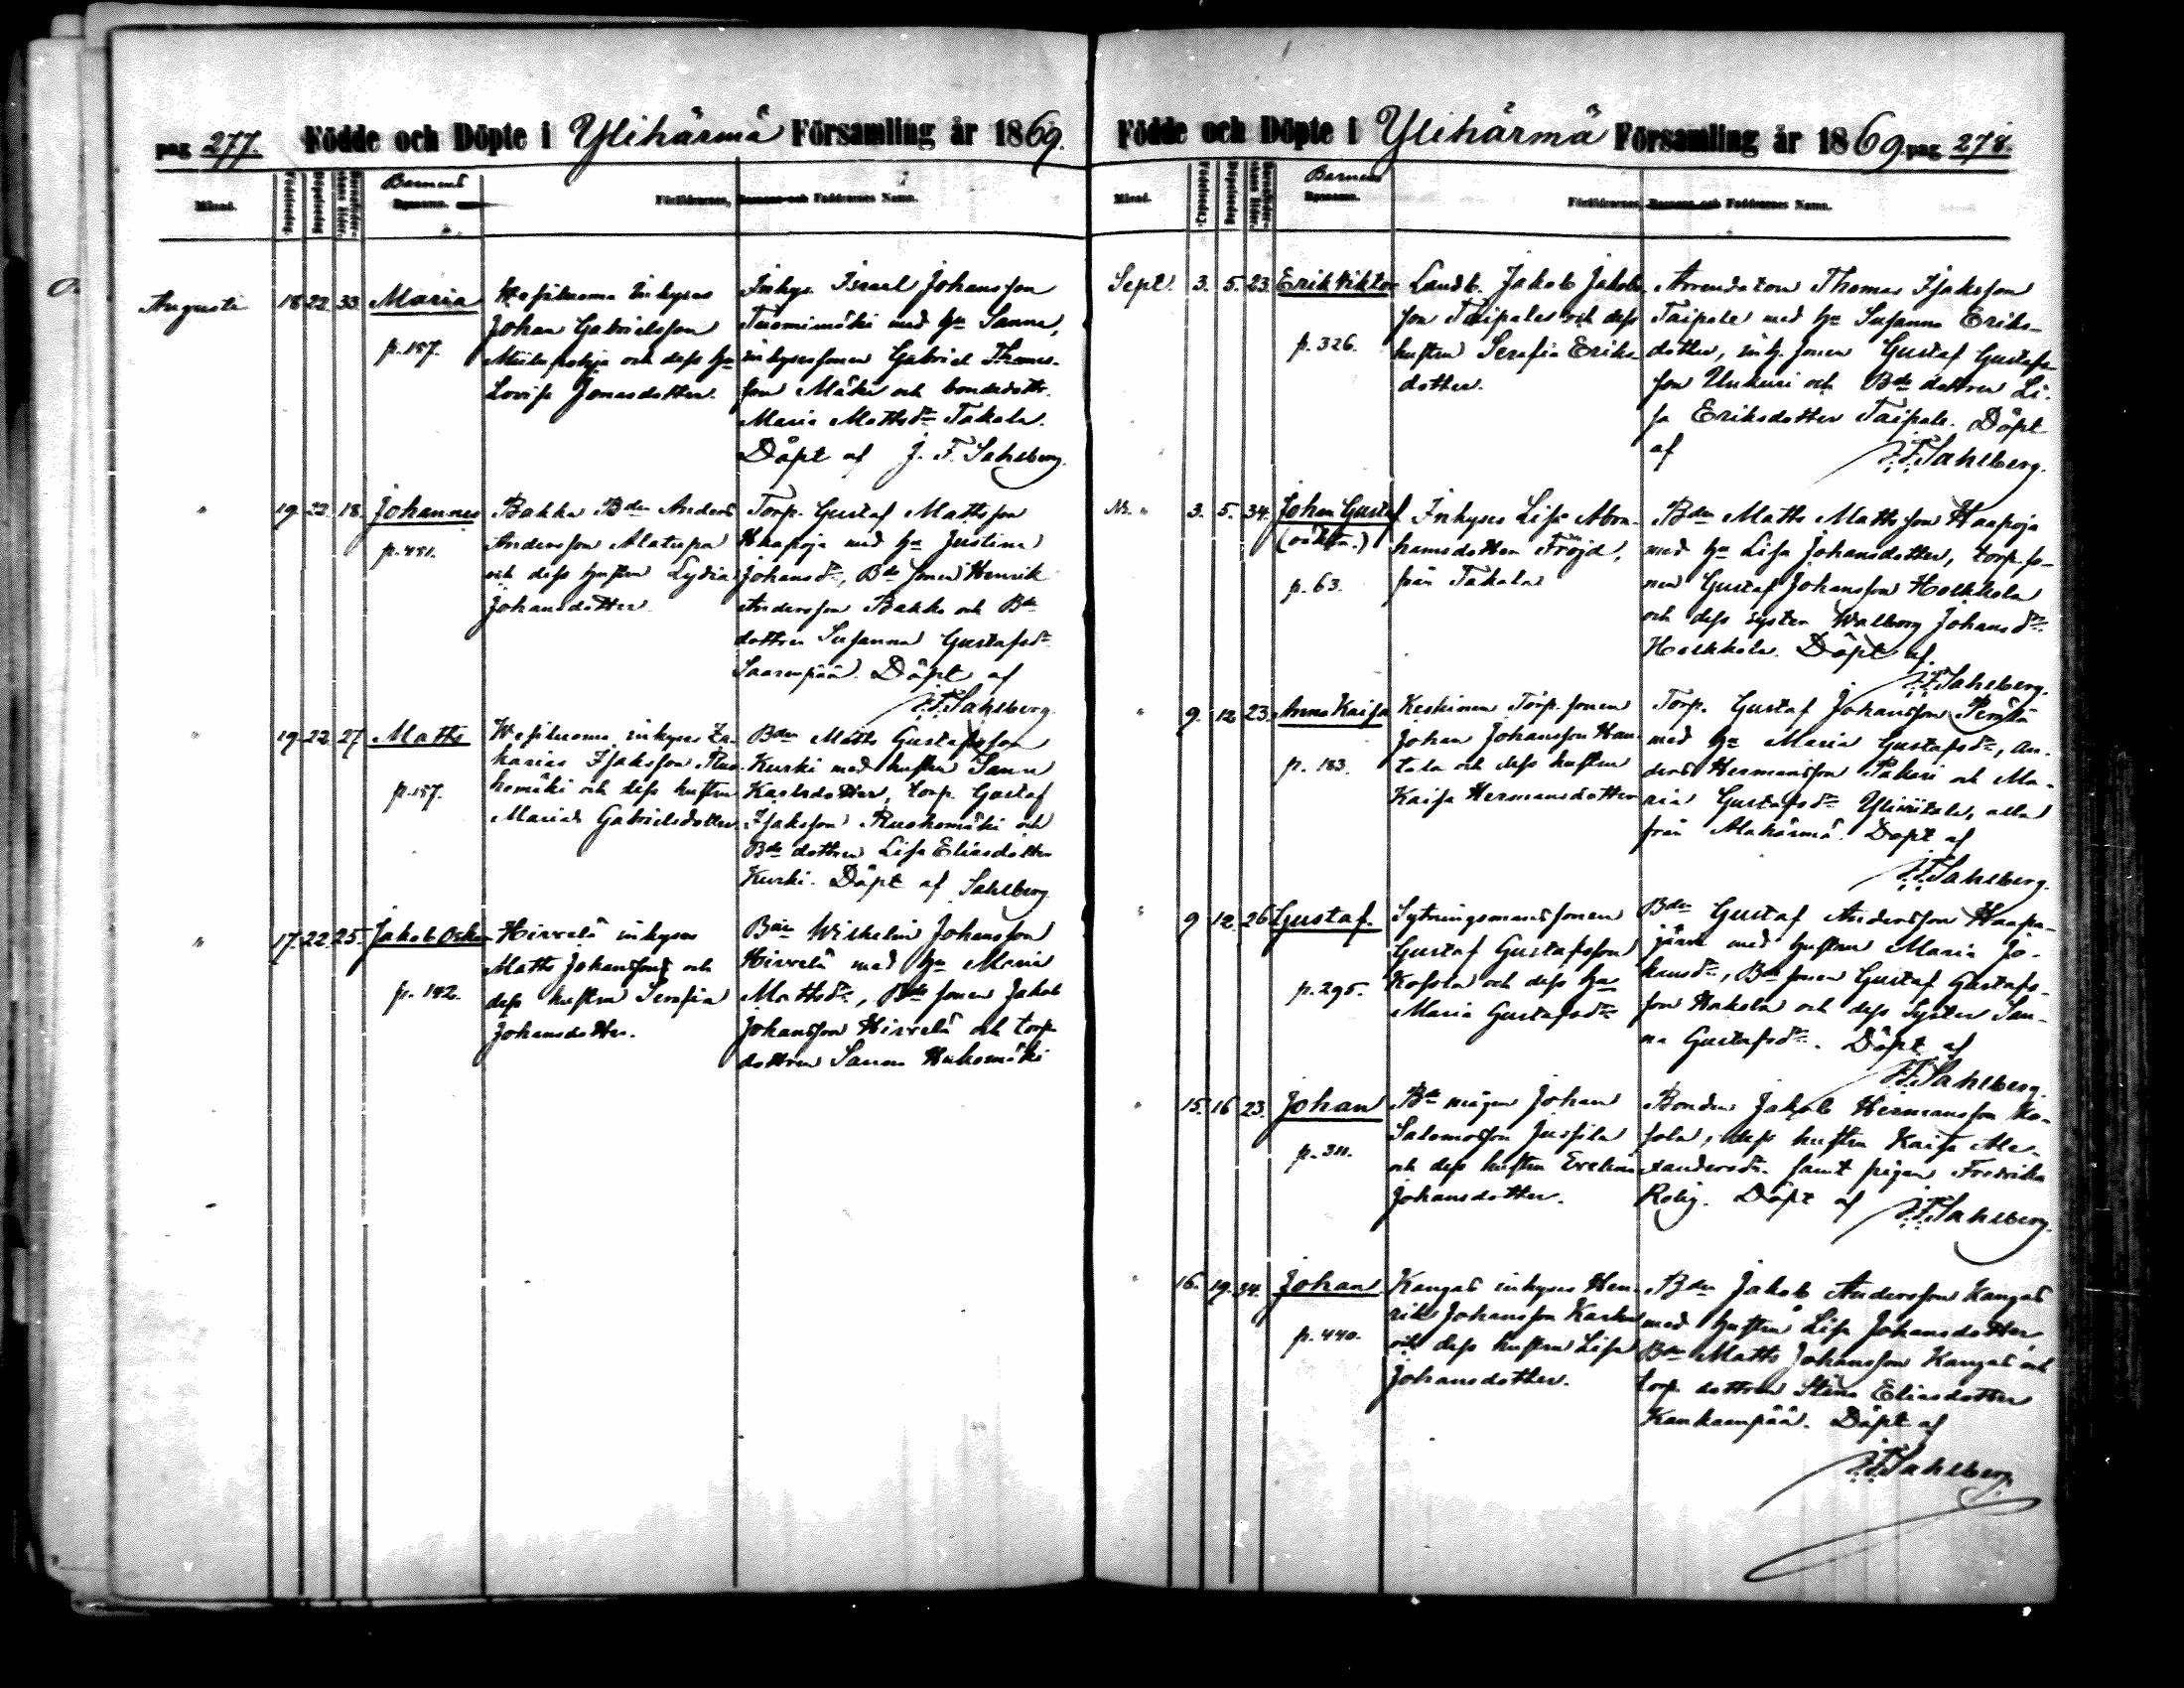 pag 277. Födde och Döpte i Ylihärmä Församling år 1869.
Månad.
Födelsedag.
Döpelsedag
Barnens
Föräldrarnes, Barnens och Faddrarnes Namn.
Augusti 18 22 33 Maria
p. 157.
Inhyses
Johan Gabrielsson
och dess hu
Lovisa Jonasdotter.
Inhys. Israel Johansson
Tuomimäki med hu Sanna,
inhysessonen Gabriel Thomas-
son Mäki och bondedottr.
Maria Mattsdr Takala.
Döpt af J. F. Sahlberg.
" 19. 22. 18. Johannes
p. 451.
Bakka Bdn Anders
Andersson Alatupa
och dess hustru Lydia
Johansdotter.
Torp. Gustaf Mattsson
Haapoja med hu Justina
Johansdr, Bde sonen Henrik
Andersson Bakka och Bde
dottren Susanna Gustafsdr
Saarenpää. Döpt af
J.F. Sahlberg.
" 19. 22. 27 Matts
p. 157.
inhyses Za-
karias Isaksson Ruo-
homäki och dess hustru
Maria Gabrielsdotter.
Bdn Matts Gustafsson
Kurki med hustru Sanna
Karlsdotter, torp. Gustaf
Isaksson Ruohomäki och
Bde dottren Lisa Eliasdotter
Kurki. Döpt af Sahlberg
" 17. 22. 25. Jakob Oskar
p. 142.
Hirvelä inhyses
Matts Johansson och
dess hustru Serafia
Johansdotter.
Bdn Wilhelm Johansson
Hirvelä med hu Maria
Mattsdr, Bde sonen Jakob
Johansson Hirvelä och torp.
dottren Sanna Huhomäki
Födde och Döpte i Ylihärmä Församling år 1869. pag 278.
Månad.
Födelsedag.
Döpelsedag
Barnens
Föräldrarnes, Barnens och Faddrarnes Namn.
Sept. 3. 5. 23. Erik Viktor
p. 326.
Landb. Jakob Jakobs-
son Taipale och dess
hustru Serafia Eriks-
dotter.
Arrendatorn Thomas Isaksson
Taipale med hu Susanna Eriks-
dotter, inh. sonen Gustaf Gustafs-
son Unkuri och Bde dottren Li-
sa Eriksdotter Taipale. Döpt
af J.F. Sahlberg.
" 3. 5. 34. Johan Gustaf
(oäkta.)
p. 63.
Inhyses Lisa Abra-
hamsdotter Fröjd,
från Takala
Bdn Matts Mattsson Haapoja
med hu Lisa Johansdotter, torp. so-
nen Gustaf Johansson Holkkola
och dess syster Walborg Johansdr
Holkkola. Döpt af
J.F. Sahlberg.
" 9. 12 23 Anna Kaisa
p. 183.
Keskinen Torp. sonen
Johan Johansson Han-
tala och dess hustru
Kaisa Hermansdotter
Torp. Gustaf Johansson Perttu
med hu Maria Gustafsdr, An-
ders Hermansson Pakari och Ma-
ria Gustafsdr Yliviitala, alla
från Alahärmä. Döpt af
J.F. Sahlberg.
" 9 12 26 Gustaf.
p. 295.
Sytningsmanssonen
Gustaf Gustafsson
Kosola och dess hu
Maria Gustafsdr
Bdn Gustaf Andersson Haapa-
järvi med hustru Maria Jo-
hansdr, Bde sonen Gustaf Gustafs-
son Hakola och dess syster San-
na Gustafsdr. Döpt af
J.F. Sahlberg.
" 15. 16 23. Johan
p. 311.
Bde mågen Johan
Salomonsson Jussila
och dess hustru Evelina
Johansdotter.
Bonden Jakob Hermansson Ko-
sola, dess hustru Kaisa Ale-
xandersdr. samt pigan Fredrika
Rolig. Döpt af J.F. Sahlberg.
" 16. 19. 34. Johan
p. 440.
Kangas inhyses Hen-
rik Johansson
och dess hustru Lisa
Johansdotter.
Bdn Jakob Andersson Kangas
med hustru Lisa Johansdotter,
Bdn Matts Johansson Kangas och
torp. dottren Stina Eliasdotter
Kankaanpää. Döpt af
J.F. Sahlberg.